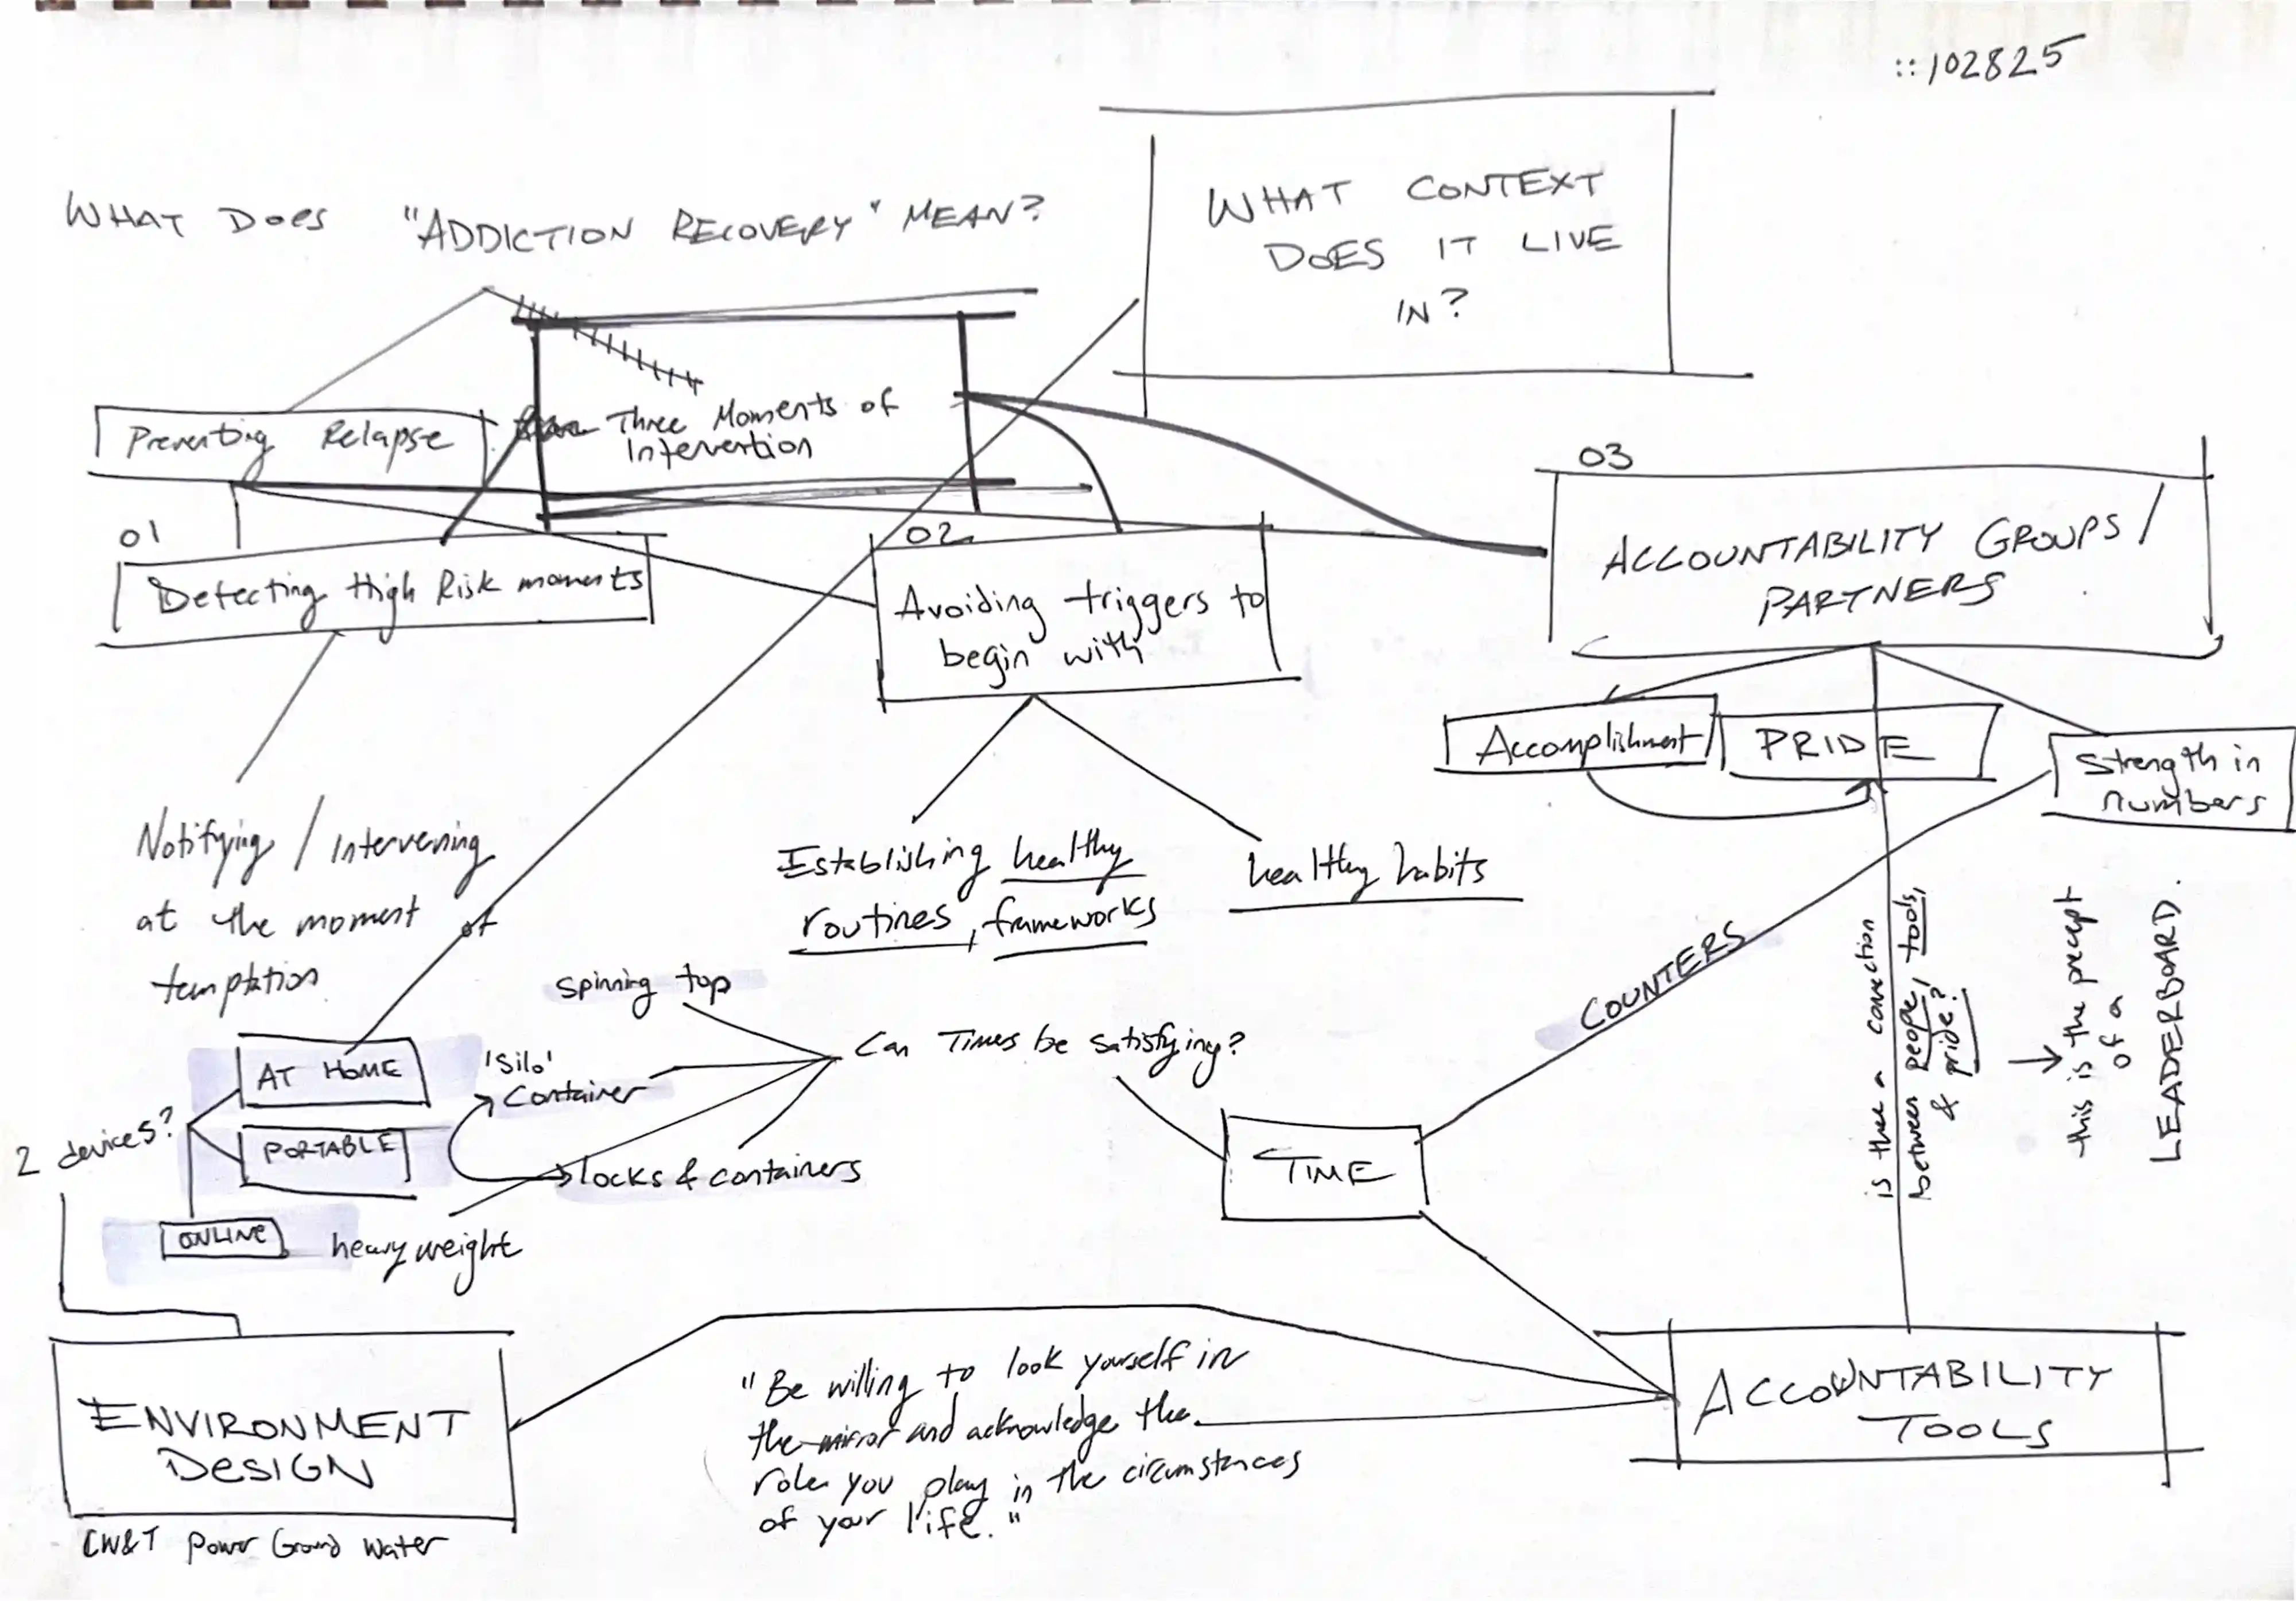 ::102825
WHAT DOES "ADDICTION RECOVERY" MEAN?
WHAT CONTEXT
DOES IT LIVE
IN?
Preventing Relapse
Three Moments of
Intervention
01
Detecting High Risk moments
02
Avoiding triggers to
begin with
03
ACCOUNTABILITY GROUPS/
PARTNERS
Accomplishment
PRIDE
Strength in
numbers
Notifying / Intervening
at the moment of
temptation
Establishing healthy
routines, frameworks
healthy habits
COUNTERS
is there a connection
between people, tools,
& pride?
this is the precept
of a
LEADERBOARD.
spinning top
'Silo'
Container
Can Times be satisfying?
locks & containers
heavy weight
AT HOME
PORTABLE
ONLINE
2 devices?
TIME
ENVIRONMENT
DESIGN
CW&T Power Ground Water
"Be willing to look yourself in
the mirror and acknowledge the
role you play in the circumstances
of your life."
ACCOUNTABILITY
TOOLS